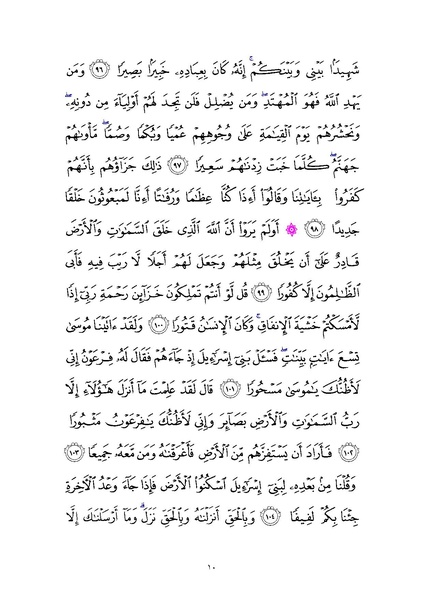 شَهِيدًۢا بَيْنِي وَبَيْنَكُمْۚ إِنَّهُۥ كَانَ بِعِبَادِهِۦ خَبِيرَۢا بَصِيرٗا ٩٦ وَمَن
يَهْدِ ٱللَّهُ فَهُوَ ٱلْمُهْتَدِۖ وَمَن يُضْلِلْ فَلَن تَجِدَ لَهُمْ أَوْلِيَآءَ مِن دُونِهِۦۖ
وَنَحْشُرُهُمْ يَوْمَ ٱلْقِيَٰمَةِ عَلَىٰ وُجُوهِهِمْ عُمْيٗا وَبُكْمٗا وَصُمّٗاۖ مَّأْوَىٰهُمْ
جَهَنَّمُۖ كُلَّمَا خَبَتْ زِدْنَٰهُمْ سَعِيرٗا ٩٧ ذَٰلِكَ جَزَآؤُهُم بِأَنَّهُمْ
كَفَرُواْ بِـَٔايَٰتِنَا وَقَالُوٓاْ أَءِذَا كُنَّا عِظَٰمٗا وَرُفَٰتًا أَءِنَّا لَمَبْعُوثُونَ خَلْقٗا
جَدِيدًا ٩٨ ۞ أَوَلَمْ يَرَوْاْ أَنَّ ٱللَّهَ ٱلَّذِي خَلَقَ ٱلسَّمَٰوَٰتِ وَٱلْأَرْضَ
قَادِرٌ عَلَىٰٓ أَن يَخْلُقَ مِثْلَهُمْ وَجَعَلَ لَهُمْ أَجَلٗا لَّا رَيْبَ فِيهِ فَأَبَى
ٱلظَّٰلِمُونَ إِلَّا كُفُورٗا ٩٩ قُل لَّوْ أَنتُمْ تَمْلِكُونَ خَزَآئِنَ رَحْمَةِ رَبِّيٓ إِذٗا
لَّأَمْسَكْتُمْ خَشْيَةَ ٱلْإِنفَاقِۚ وَكَانَ ٱلْإِنسَٰنُ قَتُورٗا ١٠٠ وَلَقَدْ ءَاتَيْنَا مُوسَىٰ
تِسْعَ ءَايَٰتِۭ بَيِّنَٰتٖۖ فَسْـَٔلْ بَنِيٓ إِسْرَٰٓءِيلَ إِذْ جَآءَهُمْ فَقَالَ لَهُۥ فِرْعَوْنُ إِنِّي
لَأَظُنُّكَ يَٰمُوسَىٰ مَسْحُورٗا ١٠١ قَالَ لَقَدْ عَلِمْتَ مَآ أَنزَلَ هَٰٓؤُلَآءِ إِلَّا
رَبُّ ٱلسَّمَٰوَٰتِ وَٱلْأَرْضِ بَصَآئِرَ وَإِنِّي لَأَظُنُّكَ يَٰفِرْعَوْنُ مَثْبُورٗا
١٠٢ فَأَرَادَ أَن يَسْتَفِزَّهُم مِّنَ ٱلْأَرْضِ فَأَغْرَقْنَٰهُ وَمَن مَّعَهُۥ جَمِيعٗا ١٠٣
وَقُلْنَا مِنۢ بَعْدِهِۦ لِبَنِيٓ إِسْرَٰٓءِيلَ ٱسْكُنُواْ ٱلْأَرْضَ فَإِذَا جَآءَ وَعْدُ ٱلْأٓخِرَةِ
جِئْنَا بِكُمْ لَفِيفٗا ١٠٤ وَبِٱلْحَقِّ أَنزَلْنَٰهُ وَبِٱلْحَقِّ نَزَلَۗ وَمَآ أَرْسَلْنَٰكَ إِلَّا
١٠